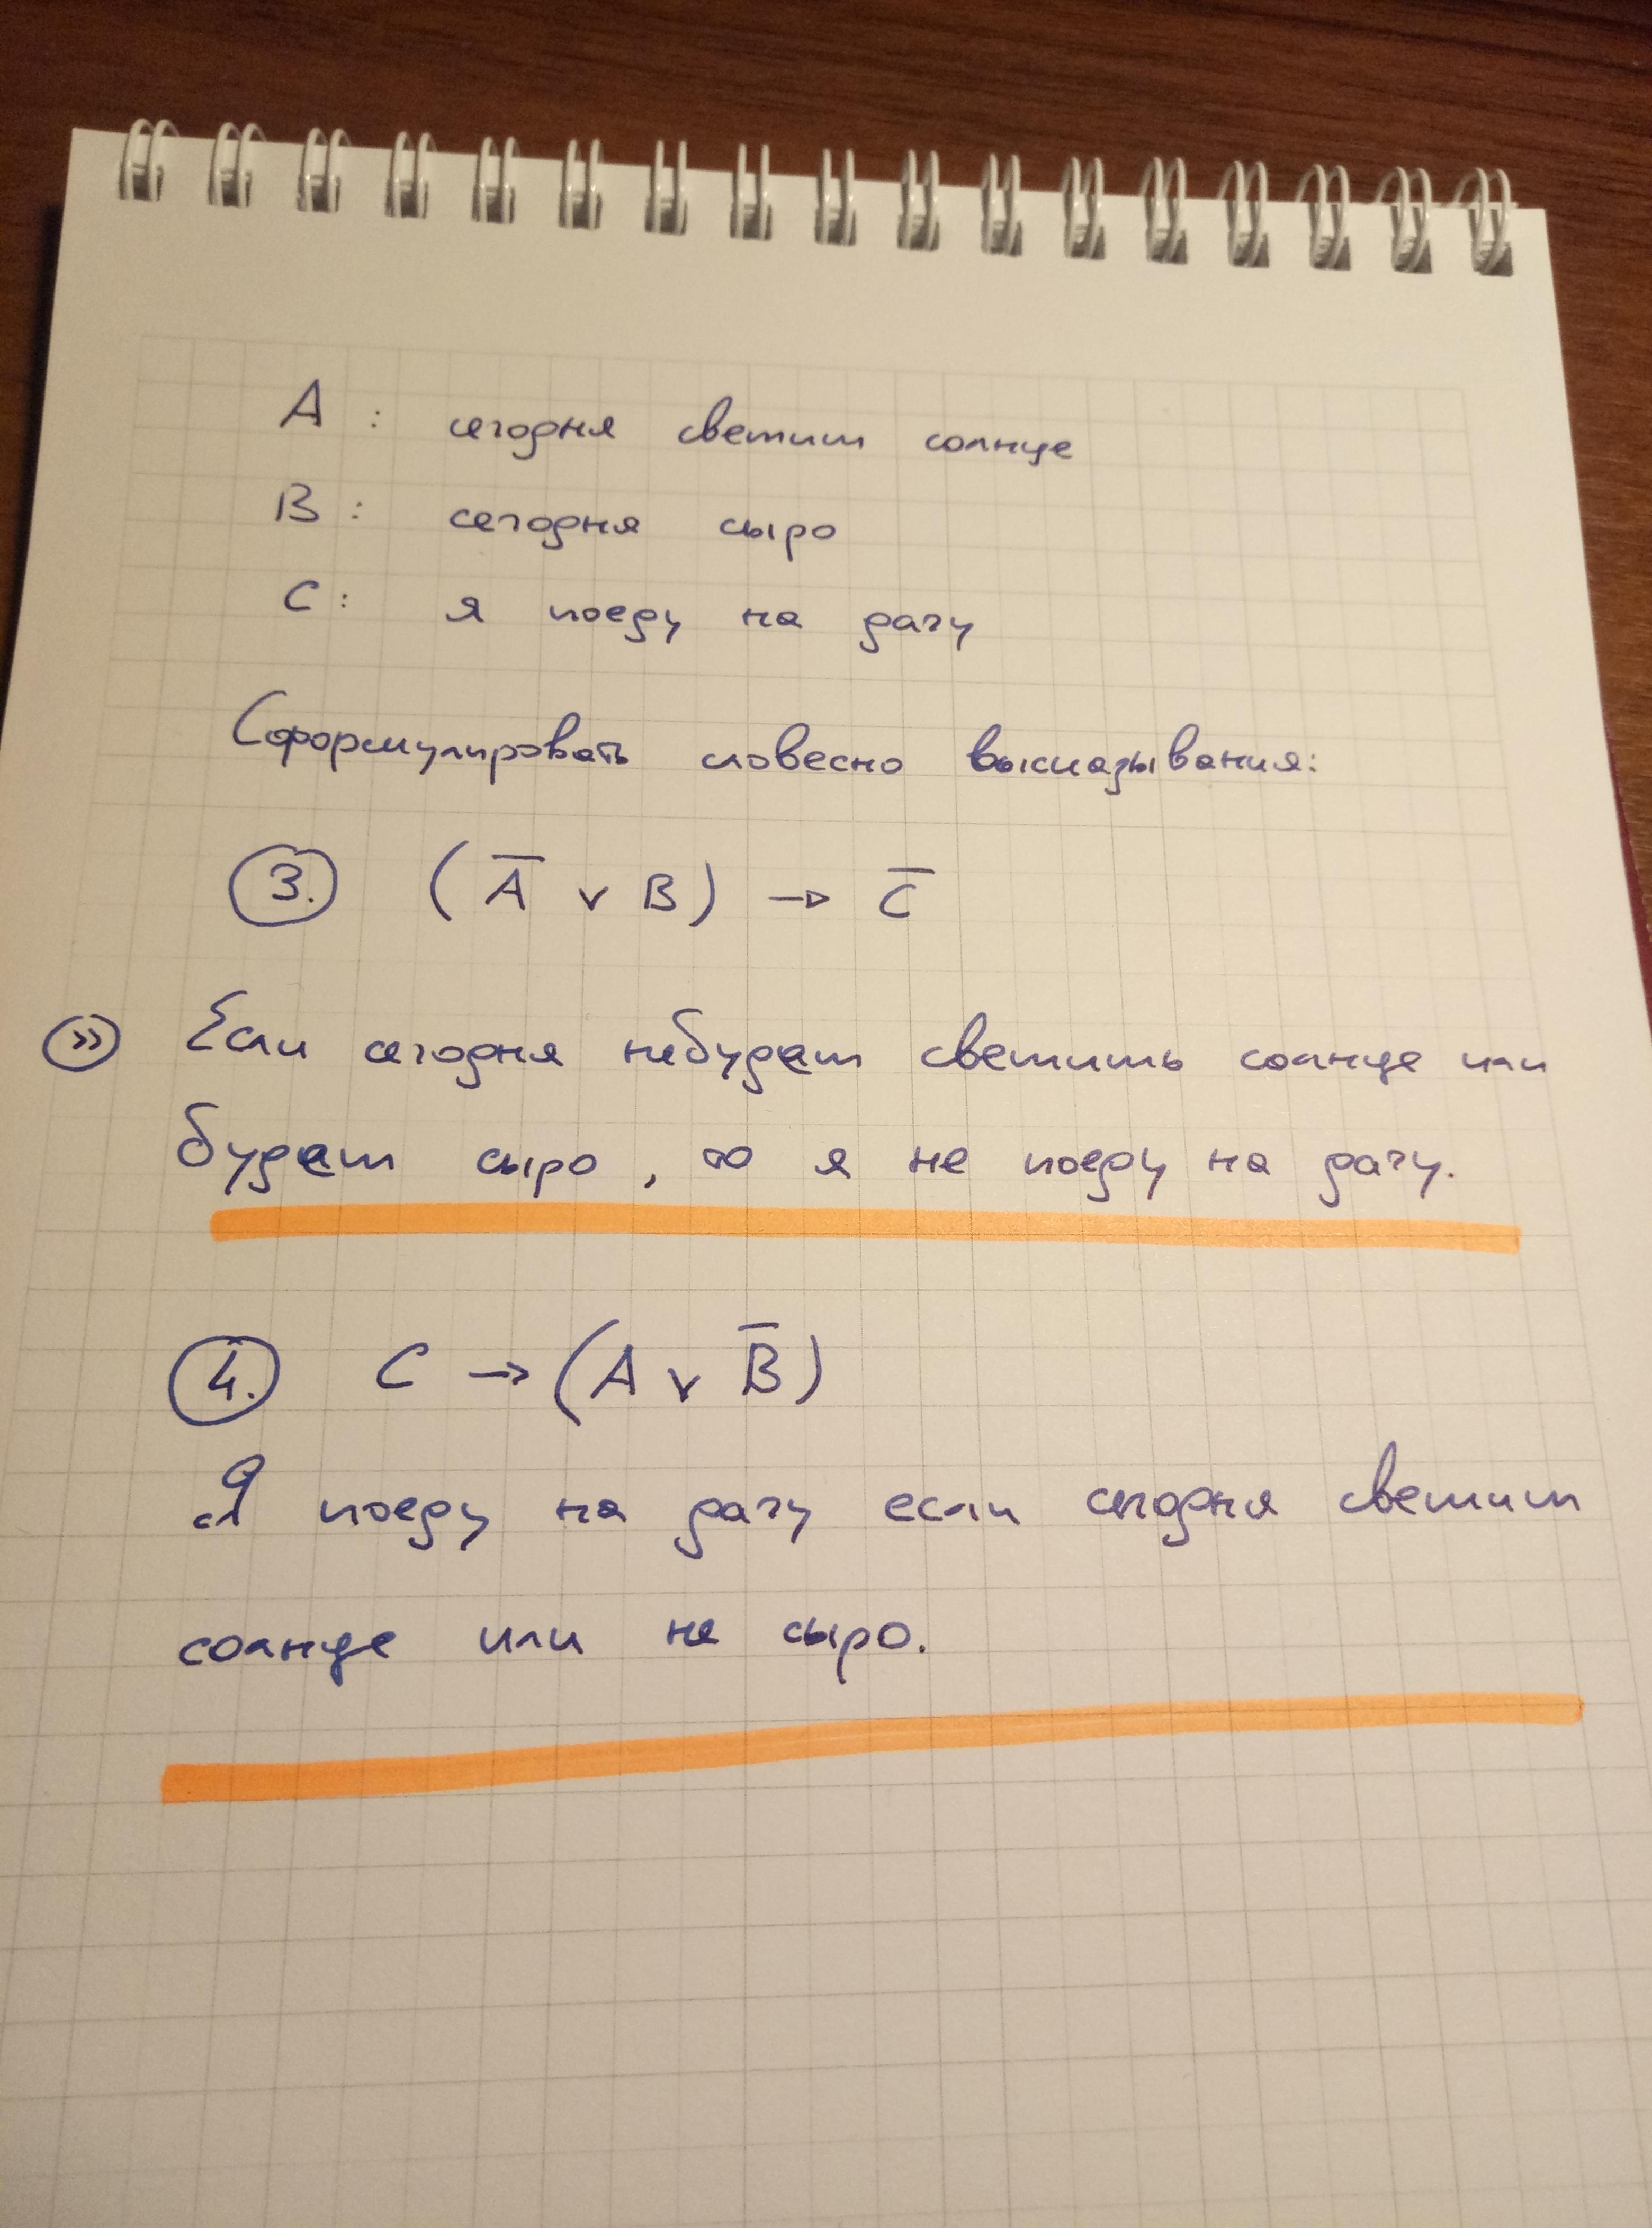 A : сегодня светит солнце
B : сегодня сыро
C : я поеду на дачу
Сформулировать словесно высказывания:
3. (A̅ ∨ B) → C̅
>> Если сегодня небудет светить солнце или
будет сыро, то я не поеду на дачу.
4. C → (A ∨ B̅)
Я поеду на дачу если сегодня светит
солнце или не сыро.